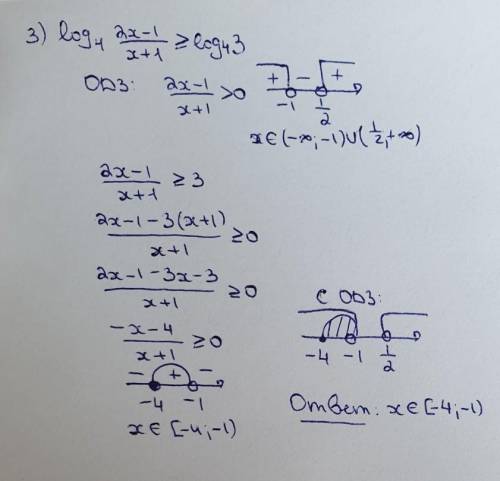 3) log₄ (2x-1)/(x+1) ≥ log₄3
ОДЗ: (2x-1)/(x+1) > 0
+ - +
-1 1/2
x∈(-∞;-1)∪(1/2,+∞)
(2x-1)/(x+1) ≥ 3
(2x-1-3(x+1))/(x+1) ≥ 0
(2x-1-3x-3)/(x+1) ≥ 0
(-x-4)/(x+1) ≥ 0
- + -
-4 -1
x∈[-4;-1)
С ОДЗ:
-4 -1 1/2
Ответ: x∈[-4;-1)